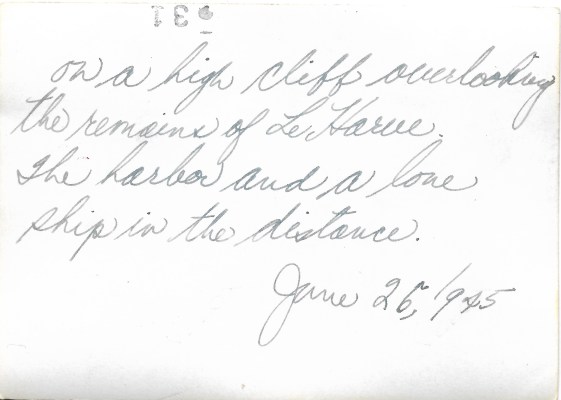 on a high cliff overlooking
the remains of Le Harve.
The harbor and a lone
ship in the distance.
June 25, 1945